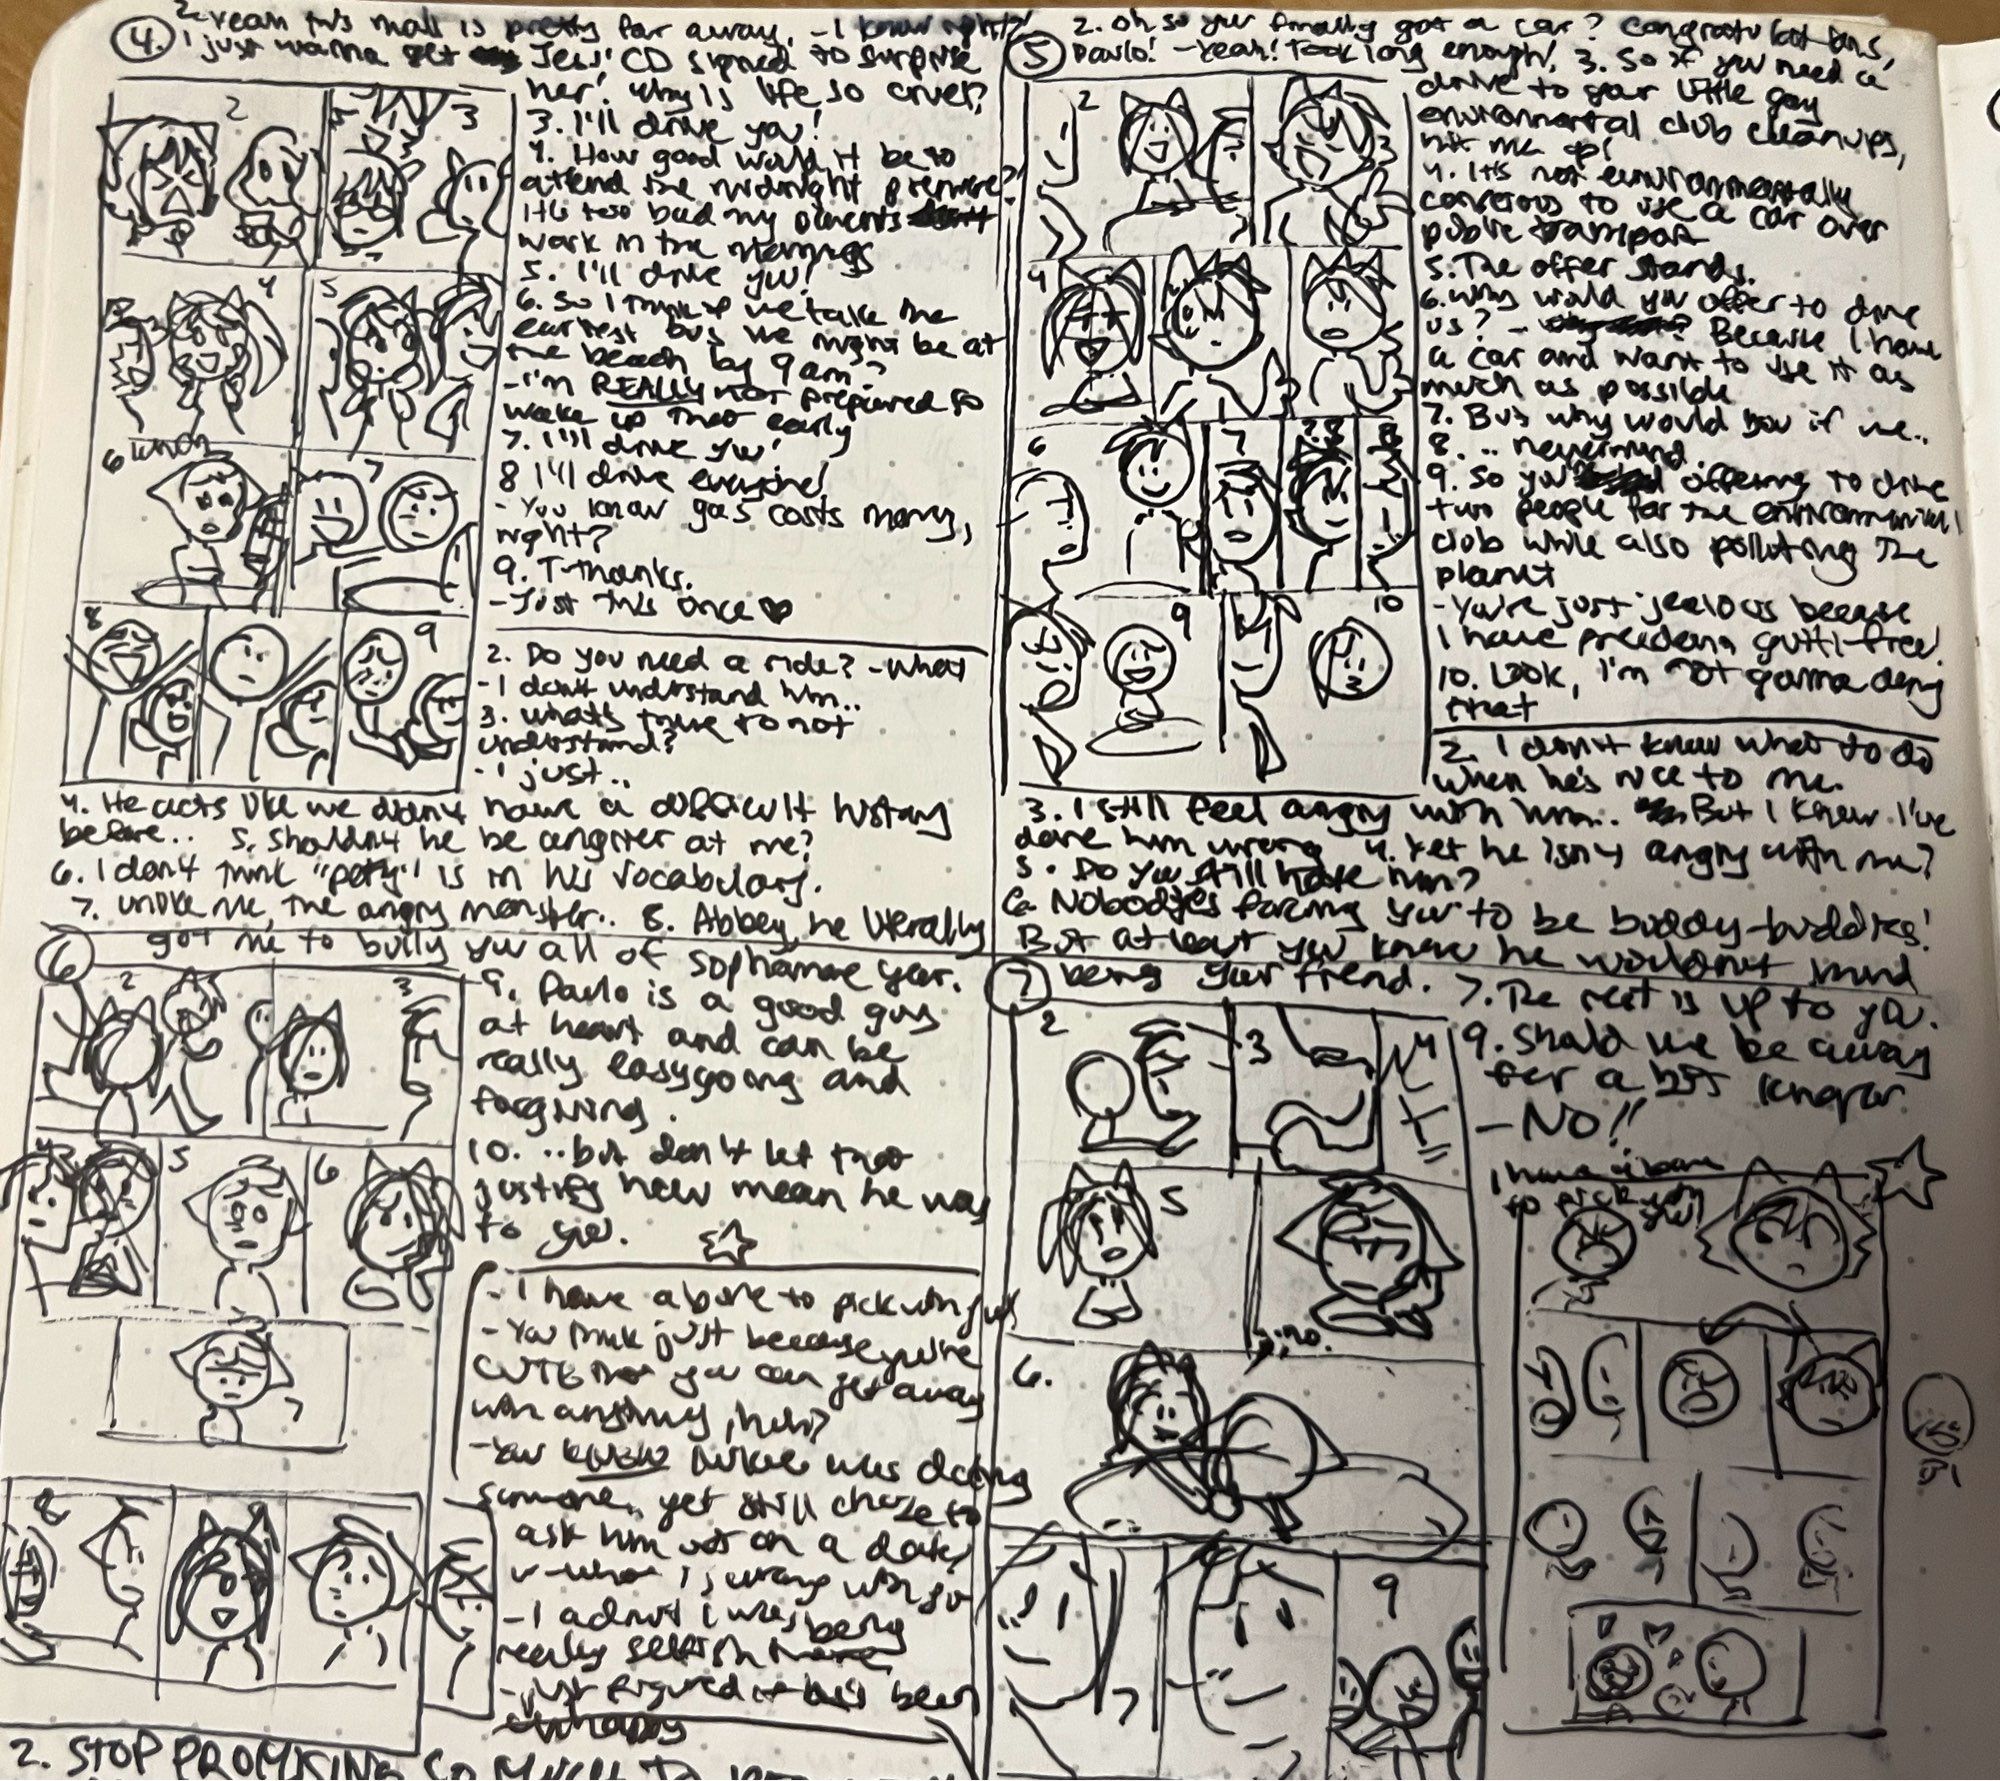 4.
2. Yeah this mall is pretty far away. - I know right?
I just wanna get Jess' CD signed to surprise
her! Why is life so cruel?
3. I'll drive you!
4. How good would it be to
attend the midnight premiere?
It's too bad my parents
work in the mornings
5. I'll drive you!
6. So I think if we take the
earliest bus we might be at
the beach by 9am?
- I'm REALLY not prepared to
wake up that early
7. I'll drive you!
8 I'll drive everyone!
- You know gas costs money,
right?
9. T-thanks.
- Just this once ♥
2
3
4
5
6
7
8
9
2. Do you need a ride? - What
- I don't understand him..
3. What's there to not
understand?
- I just..
4. He acts like we didn't have a difficult history
before.. 5. Shouldn't he be angrier at me?
6. I don't think "petty" is in his vocabulary.
7. Unlike me, the angry monster.. 8. Abbey, he literally
got me to bully you all of sophomore year.
5
2. Oh so you finally got a car? Congratulations,
Pavlo! - Yeah! Took long enough! 3. So if you need a
drive to your little gay
environmental club cleanups,
hit me up!
4. It's not environmentally
conscious to use a car over
public transport
5. The offer stands.
6. Why would you offer to drive
us? - Because I have
a car and want to use it as
much as possible
7. But why would you if we..
8. .. nevermind.
9. So you offering to drive
two people for the environmental
club while also polluting the
planet
- You're just jealous because
I have freedom guilt-free!
10. Look, I'm not gonna deny
that
2
4
6
7
8
9
10
2. I don't know what to do
when he's nice to me.
3. I still feel angry with him.. But I know I've
done him wrong 4. Yet he isn't angry with me?
5. Do you still hate him?
6. Nobody's forcing you to be buddy-buddies!
But at least you know he wouldn't mind
being your friend. 7. The rest is up to you.
6
9. Pavlo is a good guy
at heart and can be
really easygoing and
forgiving.
10. ..but don't let that
justify how mean he was
to you.
2
3
5
6
7
8
9
- I have a bone to pick with you
- You think just because you're
CUTE that you can get away
with anything, huh?
- You KNEW Mike was dating
someone, yet still chose to
ask him out on a date,
what is wrong with you
- I admit I was being
really selfish
- just figured
7
9. Should we be away
for a bit longer
- NO!!
I have a bone
to pick with
you!
2
3
4
5
6.
7
9
2. STOP PROMISING SO MUCH TO